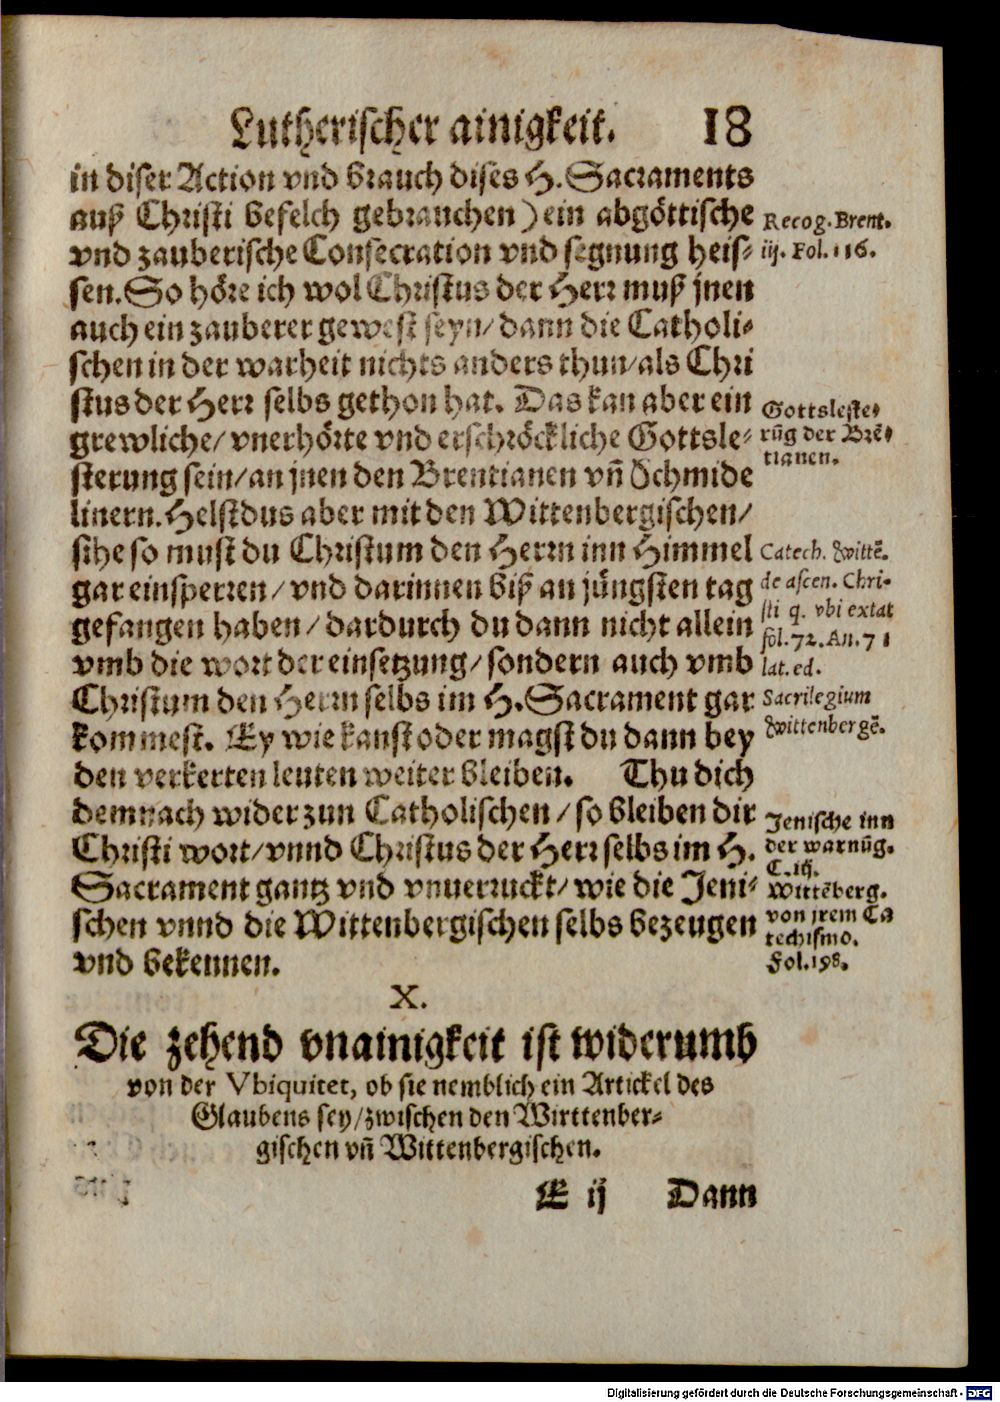 Lutherischer ainigkeit. 18
in diser Action vnd brauch dises H. Sacraments
auß Christi befelch gebrauchen) ein abgöttische
vnd zauberische Consecration vnd segnung heis-
sen. So höre ich wol Christus der Herr muß jnen
auch ein zauberer gewest seyn/ dann die Catholi-
schen in der warheit nichts anders thun/ als Chri
stus der Herr selbs gethon hat. Das kan aber ein
grewliche/ vnerhörte vnd erschröckliche Gottsle-
sterung sein/ an jnen den Brentianen vñ Schmide
linern. Helstdus aber mit den Wittenbergischen/
sihe so must du Christum den Herrn inn Himmel
gar einsperren/ vnd darinnen biß an jüngsten tag
gefangen haben/ dardurch du dann nicht allein
vmb die wort der einsetzung/ sondern auch vmb
Christum den Herrn selbs im H. Sacrament gar
kommest. Ey wie kanst oder magst du dann bey
den verkerten leuten weiter bleiben. Thu dich
demnach wider zun Catholischen/ so bleiben dir
Christi wort/ vnnd Christus der Herr selbs im H.
Sacrament gantz vnd vnuerruckt/ wie die Jeni-
schen vnnd die Wittenbergischen selbs bezeugen
vnd bekennen.
Recog. Brent.
iij. Fol. 116.
Gottsleste-
rũg der Brẽ-
tianen.
Catech. Wittẽ.
de ascen. Chri-
sti q. vbi extat
fol. 72. An. 71
lat. ed.
Sacrilegium
Wittenbergẽ.
Jenische inn
der warnũg.
C. iij.
Wittẽberg.
von jrem Ca
techismo.
Fol. 198.
X.
Die zehend vnainigkeit ist widerumb
von der Vbiquitet, ob sie nemblich ein Artickel des
Glaubens sey/ zwischen den Wirttenber-
gischen vñ Wittenbergischen.
E ij Dann
Digitalisierung gefördert durch die Deutsche Forschungsgemeinschaft - DFG